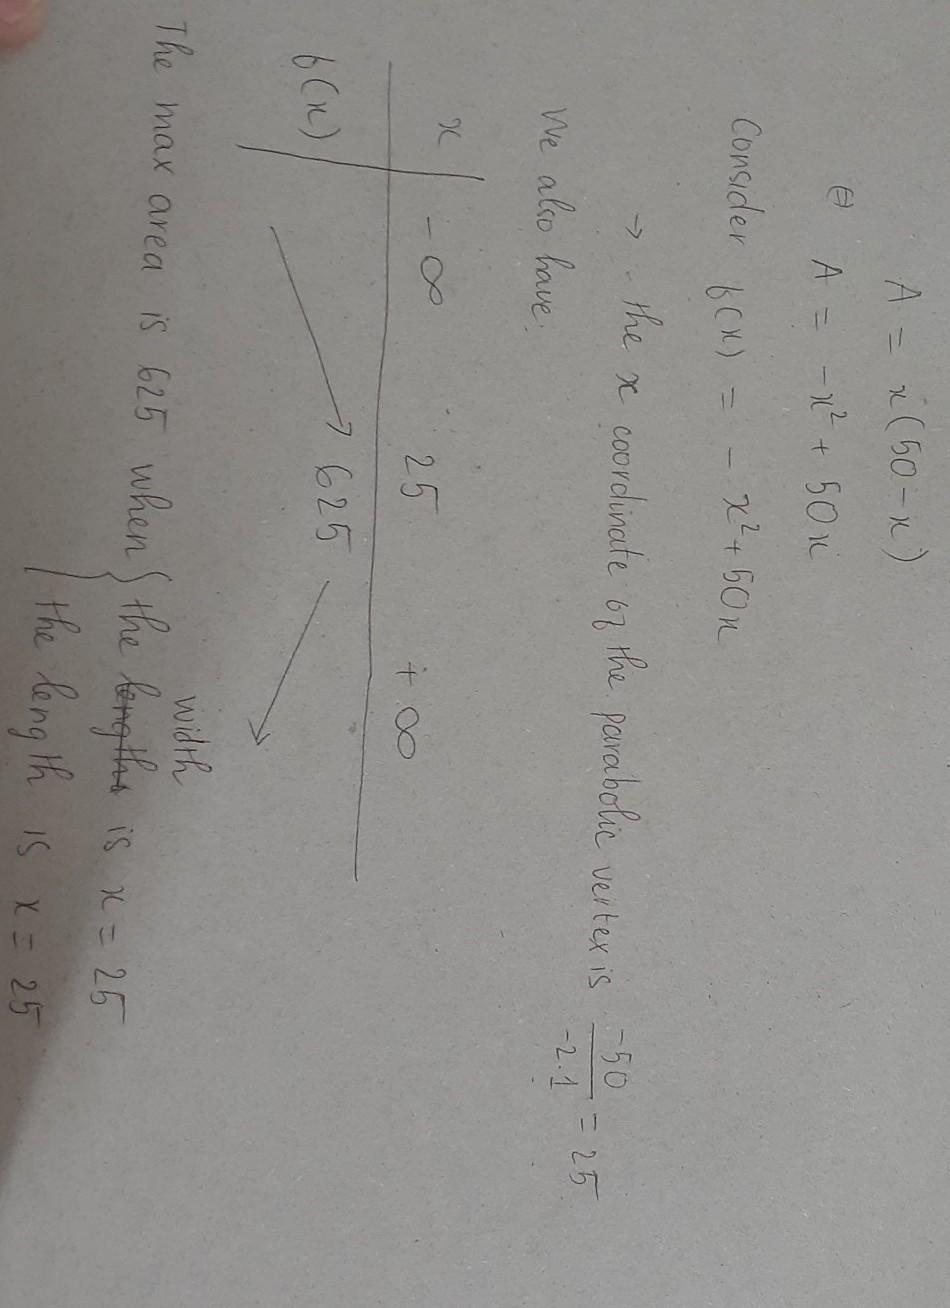 A = x(50-x)
⇔ A = -x² + 50x
Consider f(x) = -x² + 50x
→ the x coordinate of the parabolic vertex is -50/-2.1 = 25
We also have:
x -∞ 25 +∞
f(x) 625
width
The max area is 625 when { the length is x = 25
the length is x = 25